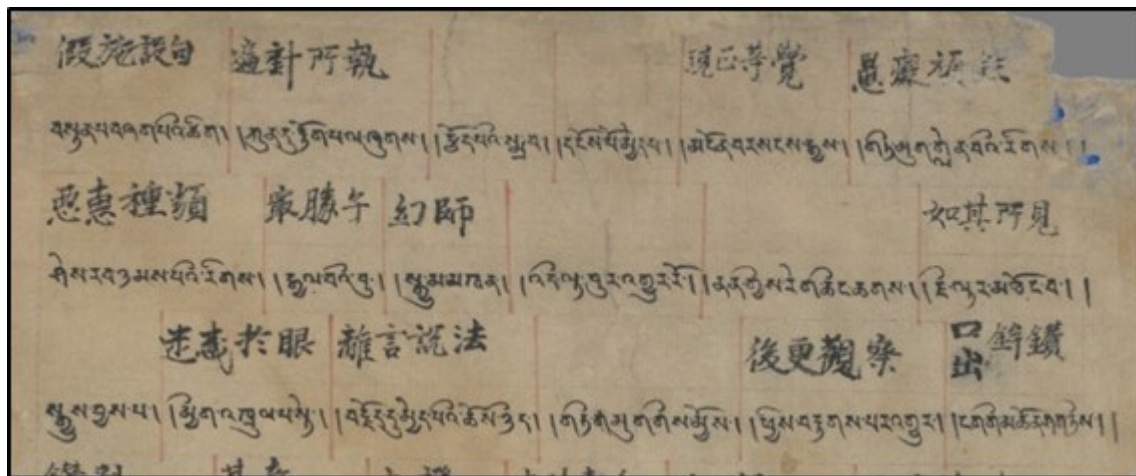 假施設句 遍計所執 現正等覺 愚癡
བསྟན་པ་བཞག་པའི་ཚིག། །ཀུན་དུ་རྟོག་པ་ལ་ཞུགས། །རྩོད་པའི་སྨྲ་བ། །དངོས་པོ་མྱེད་པ། །མངོན་བར་སངས་རྒྱས། །གཏི་མུག་གླེན་བའི་རིགས། །
惡惠種類 最勝子 幻師 如其所見
ཤེས་རབ་ཉམས་པའི་རིགས། །རྒྱལ་བའི་བུ། །སྒྱུ་མ་མཁན། །འདི་ལྟ་བུར་འགྱུར་རོ། །ནན་གྱིས་རེག་ཅིང་ཆགས། །ཇི་ལྟར་མཐོང་བ། །
迷惑於眼 離言說法 後更觀察 口出鉾鑽
སྒྱུས་བྱས་པ། །མྱིག་འཁྲུལ་པ་སྟེ། །བརྗོད་དུ་མྱེད་པའི་ཆོས་ཉིད། །གཏི་མུག་གིས་མྱོས། །ཕྱིས་བརྟགས་པར་འགྱུར། །ངག་གི་མཚོན་